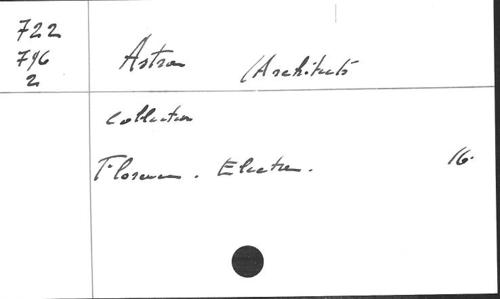 722
796
2
Astra (Architects
Collection
Florence. Electra. 16.